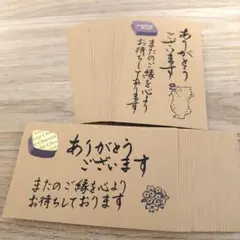 ありがとう
ございます
またのご縁を心より
お待ちしております
ありがとう
ございます
またのご縁を心より
お待ちしております